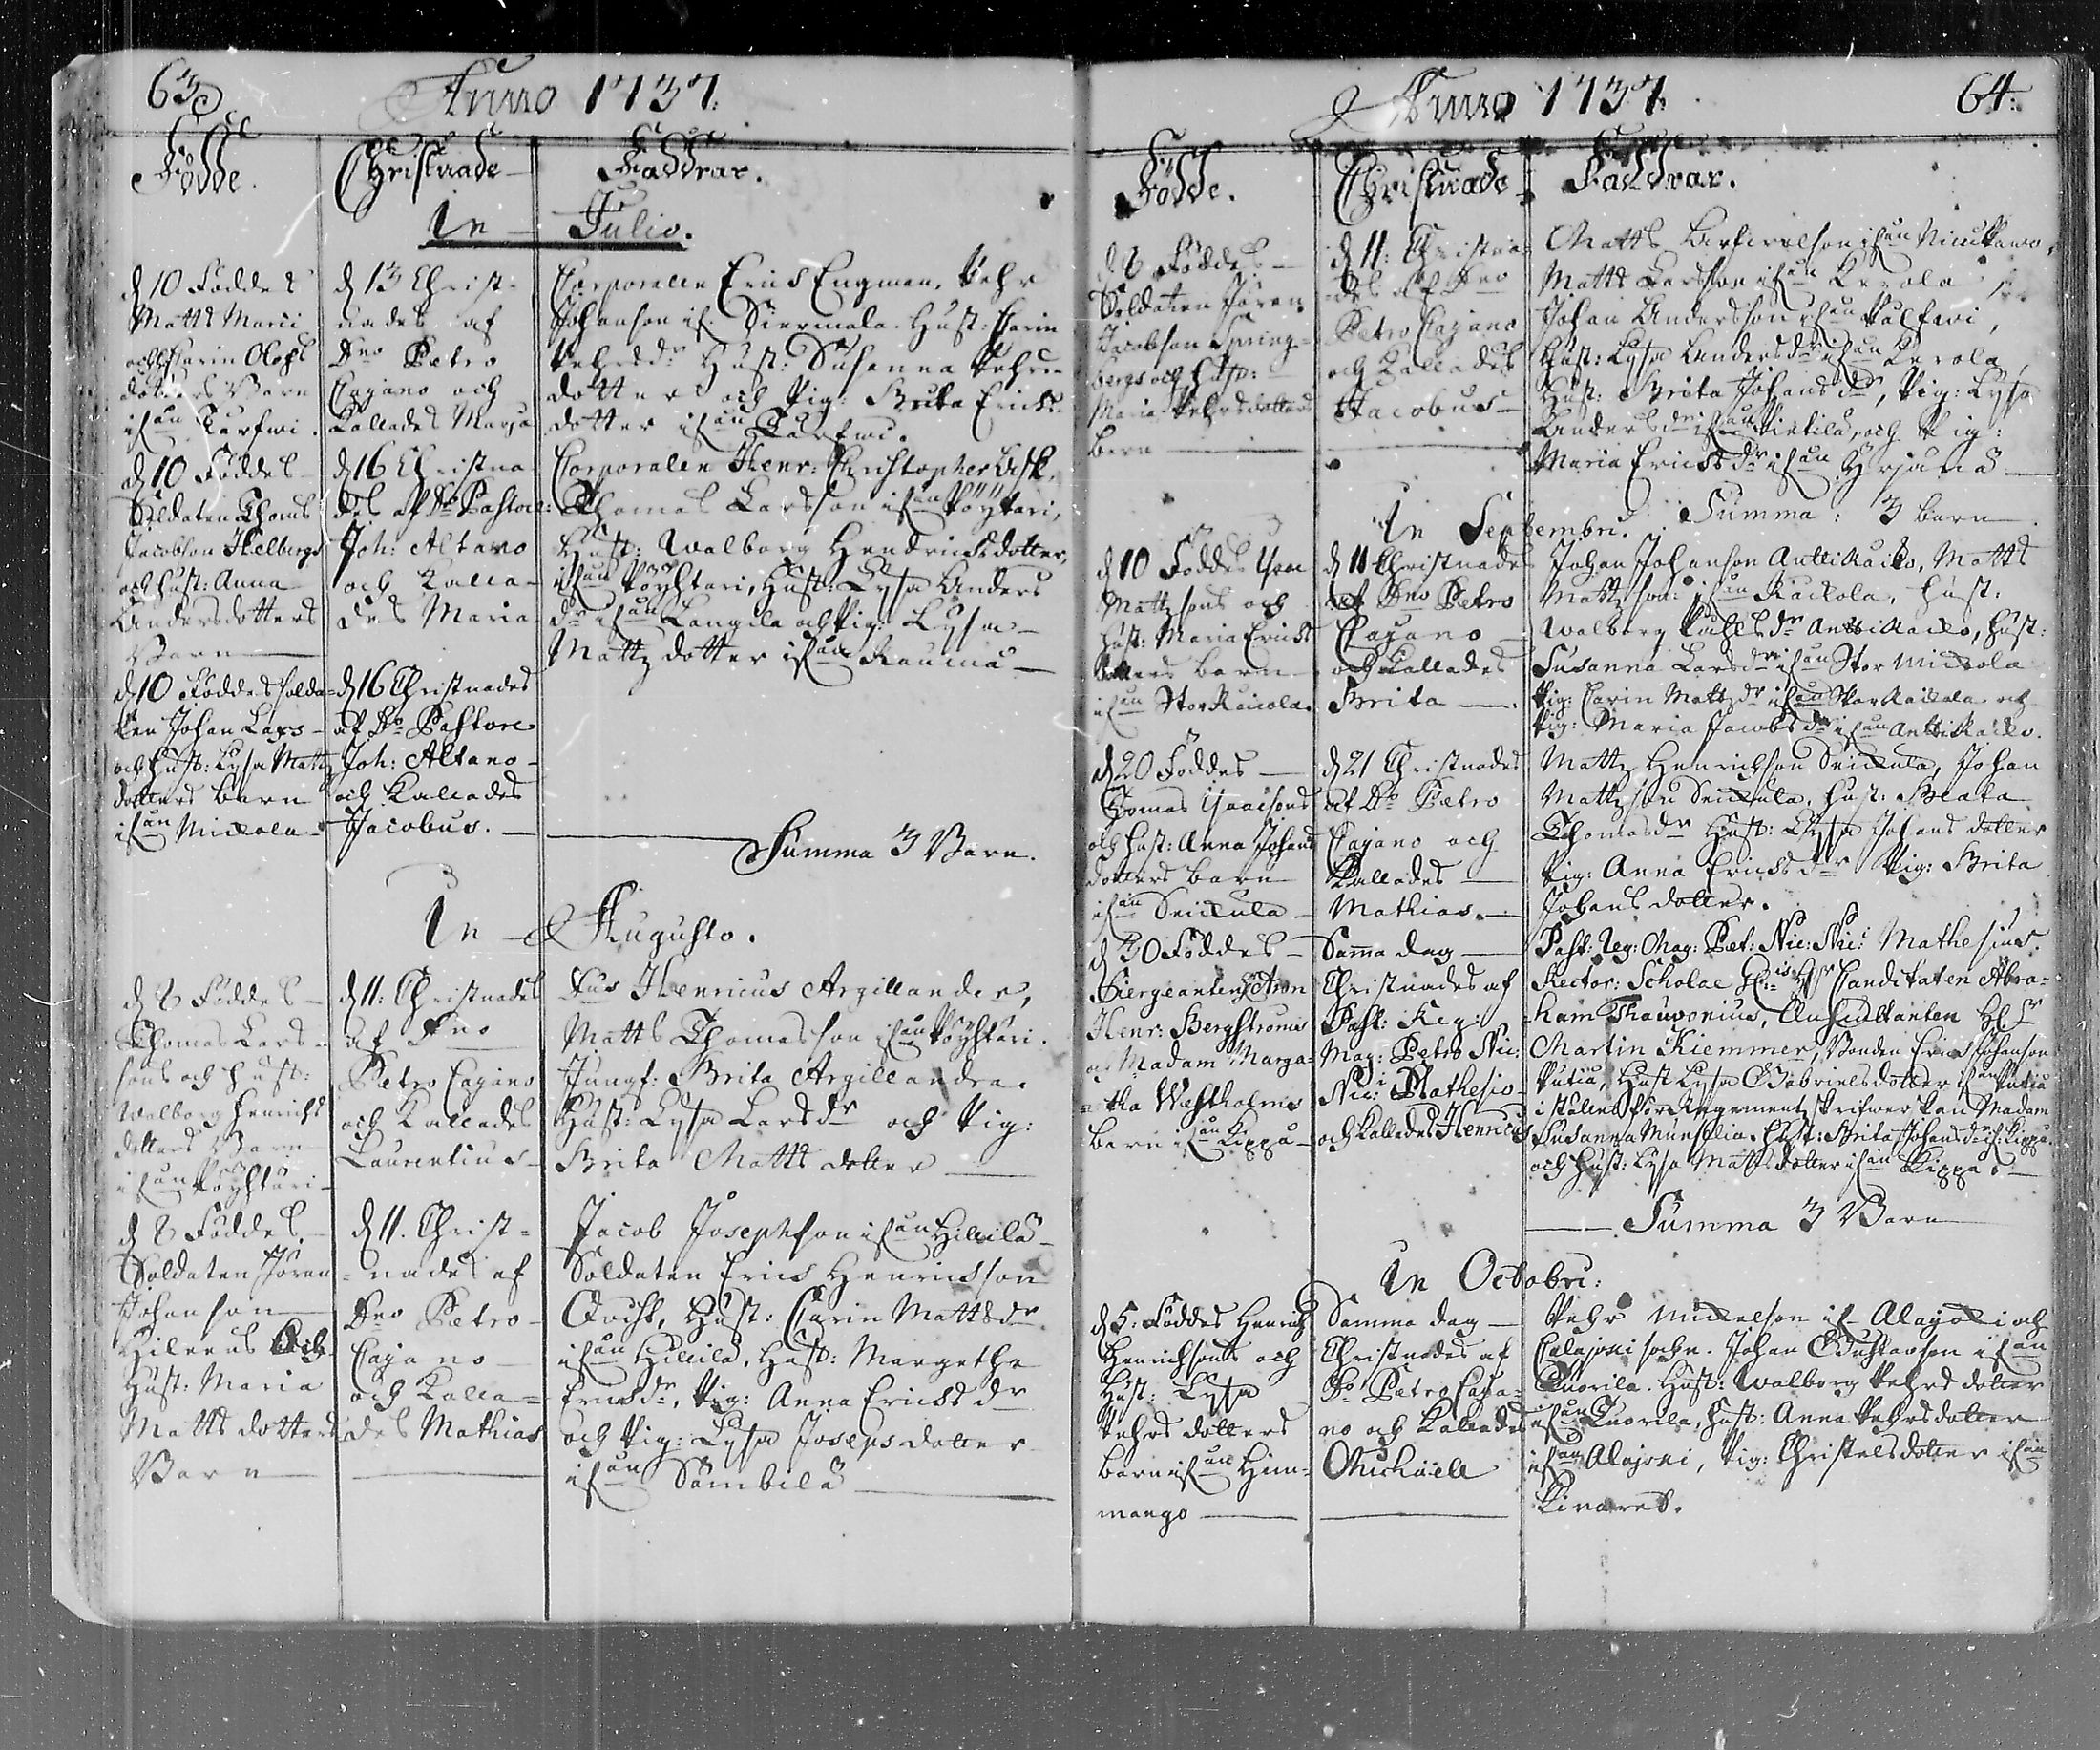 63
Anno 1737.
Födde.
Christnade
Faddrar.
In Julio.
d 10 Föddes
Matts Marci
och Carin Olofs
dotters Barn
ifrån Turfwi.
d 13 Christ-
nades af
Dno Petro
Cajano och
Kallades Marja
Corporalen Erics Engman, Pehr
Johanson if. Siermala. Hust: Carin
Pehrsdr Hust: Susanna Pehrs-
dotter och Pig: Brita Ericks
dotter ifrån Turfwi.
d 10 Föddes
Soldaten Thoms
Jacobson Hielbergs
och hust: Anna
Andersdotters
Barn
d 16 Christna-
des af Do Pastore:
Joh: Altano
och Kalla-
des Maria
Corporalen Henr: Christopher
Thomas Larsson ifrån Pöyhtäri,
Hust: Walborg Hendricksdotter,
ifrån Pöyhtäri, Hust: Lysa Anders
dr ifrån Langila och Pig: Lysa
Mattzdotter ifrån Rauma
d 10 Föddes Solda-
ten Johan Lars
och hust: Lysa Mattz
dotters barn
ifrån Mickola
d 16 Christnades
af Do Pastore
Joh: Altano
och Kallades
Jacobus.
Summa 3 Barn.
In Augusto.
d 8 Föddes
Thomas Lars-
sons och hust:
Walborg Henrichs
dotters Barn
ifrån Pöyhtäri
d 11: Christnades
af Dno
Petro Cajano
och Kallades
Laurentius
Dus Henricus Argillander,
Matts Thomasson ifrån Pöyhtäri.
Jungf: Brita Argillandra.
Hust: Lysa Larsdr och Pig:
Brita Matts dotter
d 8 Föddes
Soldaten Jöran
Johanson
Hileens Och
Hust: Maria
Matts dotters
Barn
d 11. Christ-
nades af
Dno Petro
Cajano
och Kalla-
des Mathias
Jacob Josephson ifrån Hillilä
Soldaten Erics Henricsson
Qvist, Hust: Carin Mattsdr
ifrån Hillilä, Hust: Margetha
Ericsdr, Pig: Anna Ericks dr
och Pig: Lysa Josepsdotter
ifrån Sämbilä
Anno 1737.
64.
Födde.
Christnade
Faddrar.
d 8 Föddes
Soldaten Jören
Jacobson Spring-
bergs och Hust:
Maria Pehrsdotters
barn
d 11: Christna-
des af Dno
Petro Cajano
och Kallades
Jacobus
Matts ifrån Niuckano,
Matts Larsson ifrån Kerola
Johan Andersson ifrån Palfwi,
Hust: Lysa Andersdr ifrån Kerola
Hust: Brita Johansdr, Pig: Lysa
Andersdr ifrån Pietilä, och Pig:
Maria Ericksdr ifrån Hrjänä
Summa: 3 barn
In Septembri.
d 10 Föddes
Mattzsons och
Hust: Maria Ericks
dotters barn
ifrån Stor Raicola.
d 11 Christnades
af Dno Petro
Cajano
och Kallades
Brita
Johan Johanson Anttikaiko, Matts
Mattzson ifrån Raicola, Hust:
Walborg dr Anttikaiko, Hust:
Susanna Larsdr ifrån Stor Mickola
Pig: Carin Mattzdr ifrån Stor Raicola och
Pig: Maria Jacobsdr ifrån Anttikaiko.
d 20 Föddes
Thomas Isaacsons
och hust: Anna Johans
dotters barn
ifrån Seickula
d 21 Christnades
af Do Petro
Cajano och
Kallades
Mathias.
Mattz Henrichson Seickula, Johan
Mattzson Seickula, hust: Beata
Thomasdr Hust: Lysa Johansdotter
Pig: Anna Ericksdr Pig: Brita
Johansdotter.
d 30 Föddes
Siergeanten
Henr: Bergströms
och Madam Marga-
tha Westholms
barn ifrån Kippu
Samma dag
Christnades af
Past: Reg:
Mag: Petro Nic:
Nic: Mathesio
och Kallades Henricus
Past: Reg: Mag: Pet: Nic: Nic: Mathesius.
Rector: Scholae Canditaten Abra-
ham Thauvonius, Auscultanten Hl
Martin Kiemmer, Bonden Erics Johanson
Putiu, Hust Lysa Gabrielsdotter ifrån Putiu
i stället för Regementzskrifwerskan Madam
Susanna Münchlia. Hust: Brita Johansd if: Kippu
och hust: Lysa Matts dotter ifrån Kippu
Summa 3 Barn
In Octobri:
d 5. Föddes Henrich
Henrichsons och
Hust: Lysa
Pehrs dotters
barn ifrån Him-
mango
Samma dag
Christnades af
Do Petro Caja-
no och Kallades
Michaell
Pehr Mickelson if Alajoki och
Calajoki sochn. Johan Gustavson ifrån
Tuorila. Hust: Walborg Pehrs dotter
ifrån Tuorila, Hust: Anna Pehrsdotter
ifrån Alajoki, Pig: Christelsdotter ifrån
Kinarets.